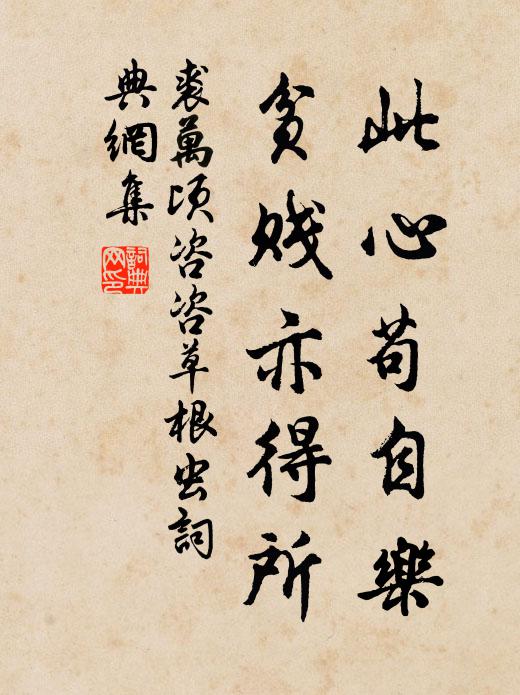 此心苟自樂
貧賤亦得所
裘萬頃咨咨草根虫詞
典網集
詞典
网印